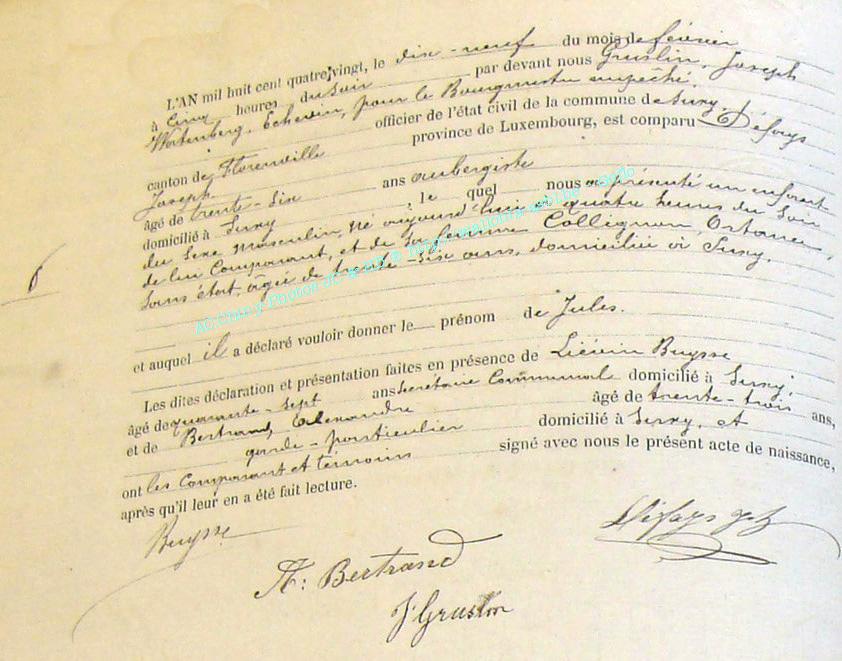 L'AN mil huit cent quatre vingt, le dix-neuf du mois de février
à cinq heures du soir par devant nous Gruslin, Joseph
Echevin, pour le Bourgmestre empêché,
officier de l'état civil de la commune de Suxy,
canton de Florenville province de Luxembourg, est comparu Défays
Joseph
âgé de trente-six ans aubergiste
domicilié à Suxy ; le quel nous a présenté un enfant
du sexe masculin, né aujourd'hui à quatre heures du soir
de lui Comparant, et de sa femme Collignon,
sans état, âgée de trente-six ans, domiciliée à Suxy.
et auquel il a déclaré vouloir donner le prénom de Jules.
Les dites déclaration et présentation faites en présence de Liévin Buysse
âgé de quarante-sept ans Secrétaire Communal domicilié à Suxy,
et de Bertrand, Alexandre âgé de trente-trois ans,
garde-particulier domicilié à Suxy, et
ont les Comparant et témoins signé avec nous le présent acte de naissance,
après qu'il leur en a été fait lecture.
Buysse
Défays
A: Bertrand
J Gruslin